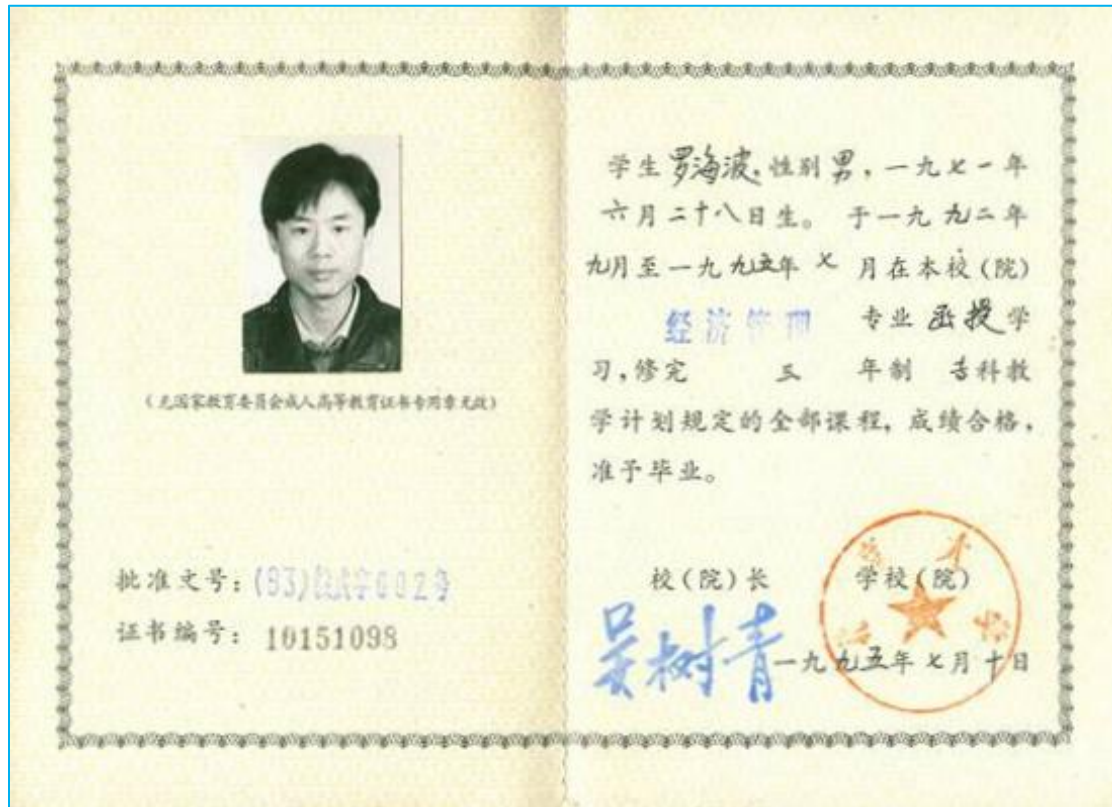 (无国家教育委员会成人高等教育证书专用章无效)
批准文号:(93)
证书编号: 10151098
学生罗海波,性别男,一九七一年
六月二十八日生。 于一九九二年
九月至一九九五年 七 月在本校(院)
经济管理 专业 函授学
习,修完 三 年制 专科教
学计划规定的全部课程,成绩合格,
准予毕业。
校(院)长 学校(院)
吴树青
一九九五年七月十日